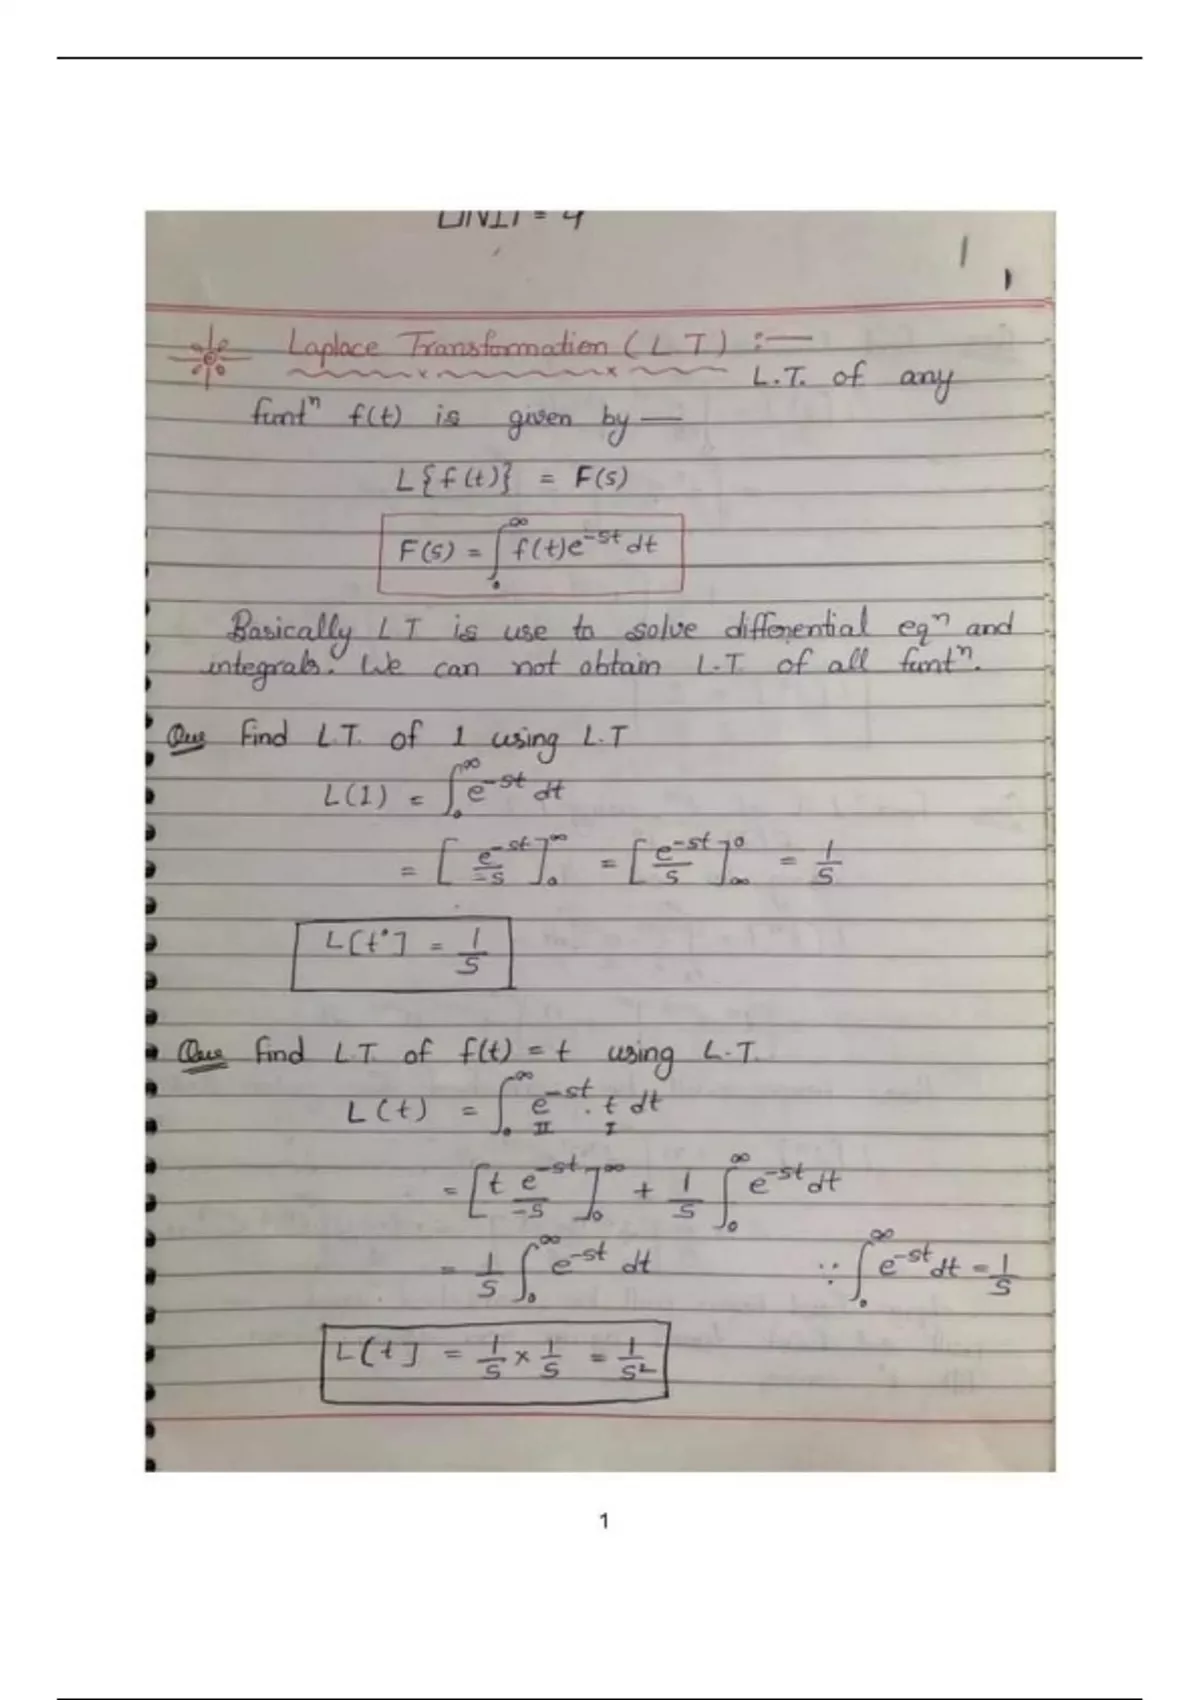 UNIT = 4
1
Laplace Transformation (LT) :—
L.T. of any
funtⁿ f(t) is given by —
L{f(t)} = F(s)
F(s) = ∫₀^∞ f(t)e^-st dt
Basically LT is use to solve differential eqⁿ and
integrals. We can not obtain L.T. of all funtⁿ.
Que Find L.T. of 1 using L.T
L(1) = ∫₀^∞ e^-st dt
= [e^-st/-s]₀^∞ = [e^-st/s]_∞^0 = 1/s
L[t°] = 1/s
Que Find L.T. of f(t) = t using L.T.
L(t) = ∫₀^∞ e^-st . t dt
II I
= [t e^-st/-s]₀^∞ + 1/s ∫₀^∞ e^-st dt
= 1/s ∫₀^∞ e^-st dt ∵ ∫₀^∞ e^-st dt = 1/s
L[t] = 1/s × 1/s = 1/s²
1